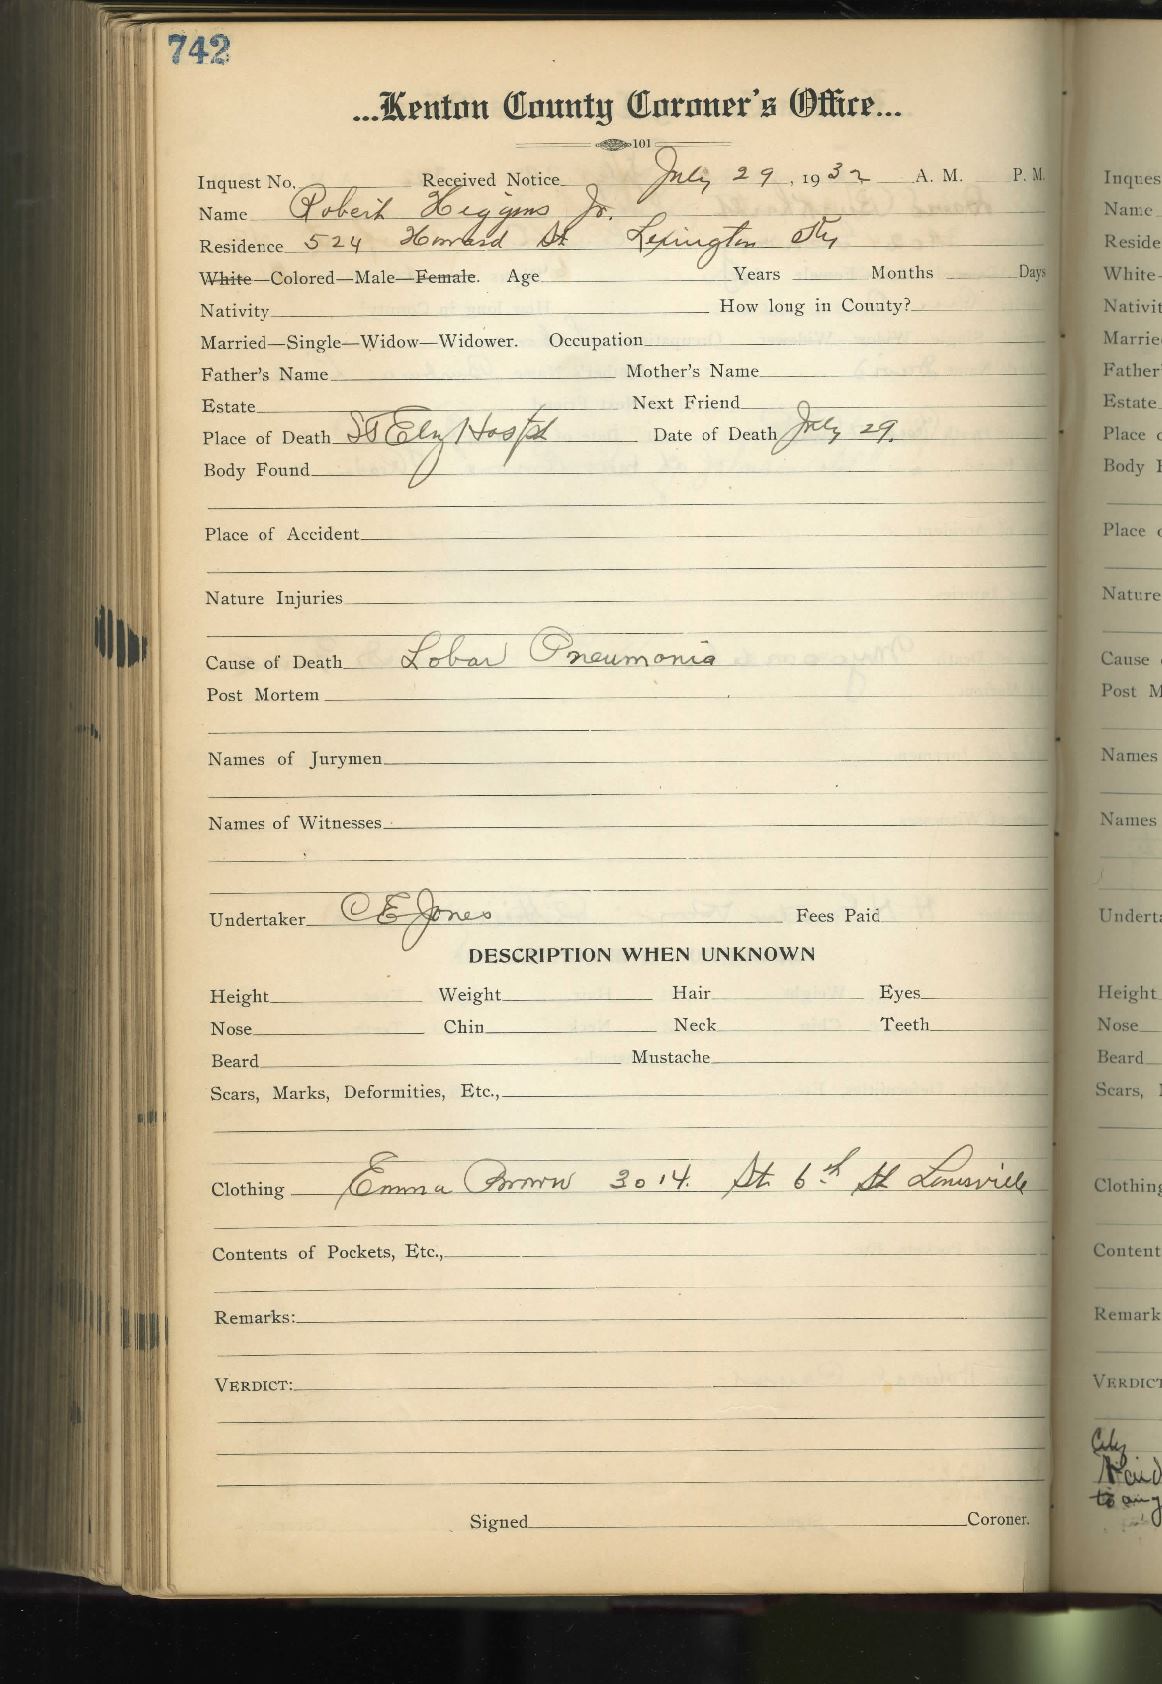 742
...Kenton County Coroner's Office...
101
Inquest No. Received Notice July 29, 1932 A. M. P. M.
Name Robert Higgins Jr.
Residence 524 Howard St Lexington Ky
White—Colored—Male—Female. Age Years Months Days
Nativity How long in County?
Married—Single—Widow—Widower. Occupation
Father's Name Mother's Name
Estate Next Friend
Place of Death St Eliz Hospt Date of Death July 29.
Body Found
Place of Accident
Nature Injuries
Cause of Death Lobar Pneumonia
Post Mortem
Names of Jurymen
Names of Witnesses
Undertaker C E Jones Fees Paid
DESCRIPTION WHEN UNKNOWN
Height Weight Hair Eyes
Nose Chin Neck Teeth
Beard Mustache
Scars, Marks, Deformities, Etc.,
Clothing Emma Brown 3014. St. 6th St Louisville
Contents of Pockets, Etc.,
Remarks:
VERDICT:
Signed Coroner.
Inques
Name
Reside
White-
Nativit
Marrie
Father'
Estate
Place
Body
Place
Nature
Cause
Post M
Names
Names
Underta
Height
Nose
Beard
Scars,
Clothing
Content
Remark
VERDICT
City